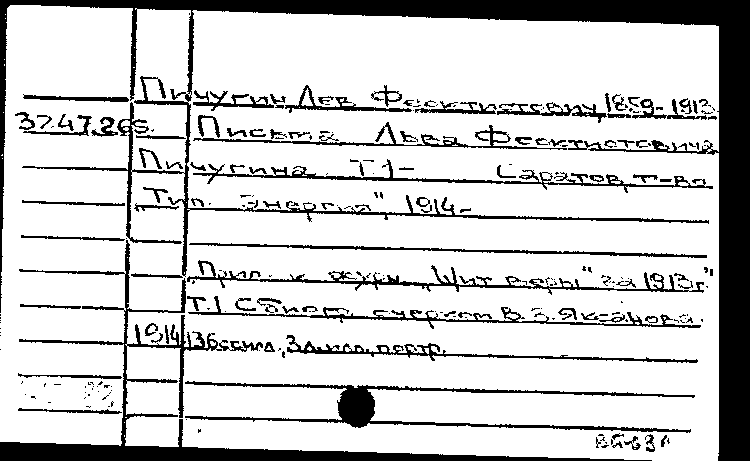 Пичугин, Лев Феоктистович, 1859-1913.
37.47.265. Письма Льва Феоктистовича
Пичугина Т.1- Саратов, т-во
„Тип. Энергия", 1914-
„Прил. к журн. „Щит веры" за 1913г."
Т.1 С биогр. очерком В.З. Яксанова.
1914. 136 с. с илл., 3 л. илл., портр.